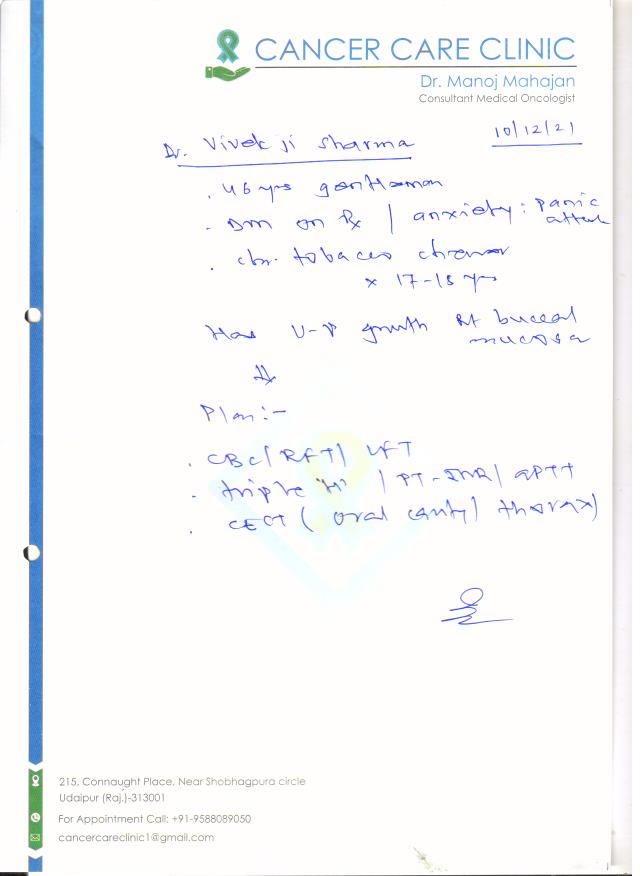 CANCER CARE CLINIC
Dr. Manoj Mahajan
Consultant Medical Oncologist
10/12/21
Dr. Vivek ji Sharma
. 46 yrs gentleman
. DM on Rx | anxiety: panic attack
. chr. tobacco chewer
x 17-18 yrs
Has U-P growth Rt buccal mucosa
Plan:-
. CBC/ RFT/ LFT
. triple "H" / PT-INR/ aPTT
. CECT (oral cavity/ thorax)
215, Connaught Place, Near Shobhagpura circle
Udaipur (Raj.)-313001
For Appointment Call: +91-9588089050
cancercareclinic1@gmail.com